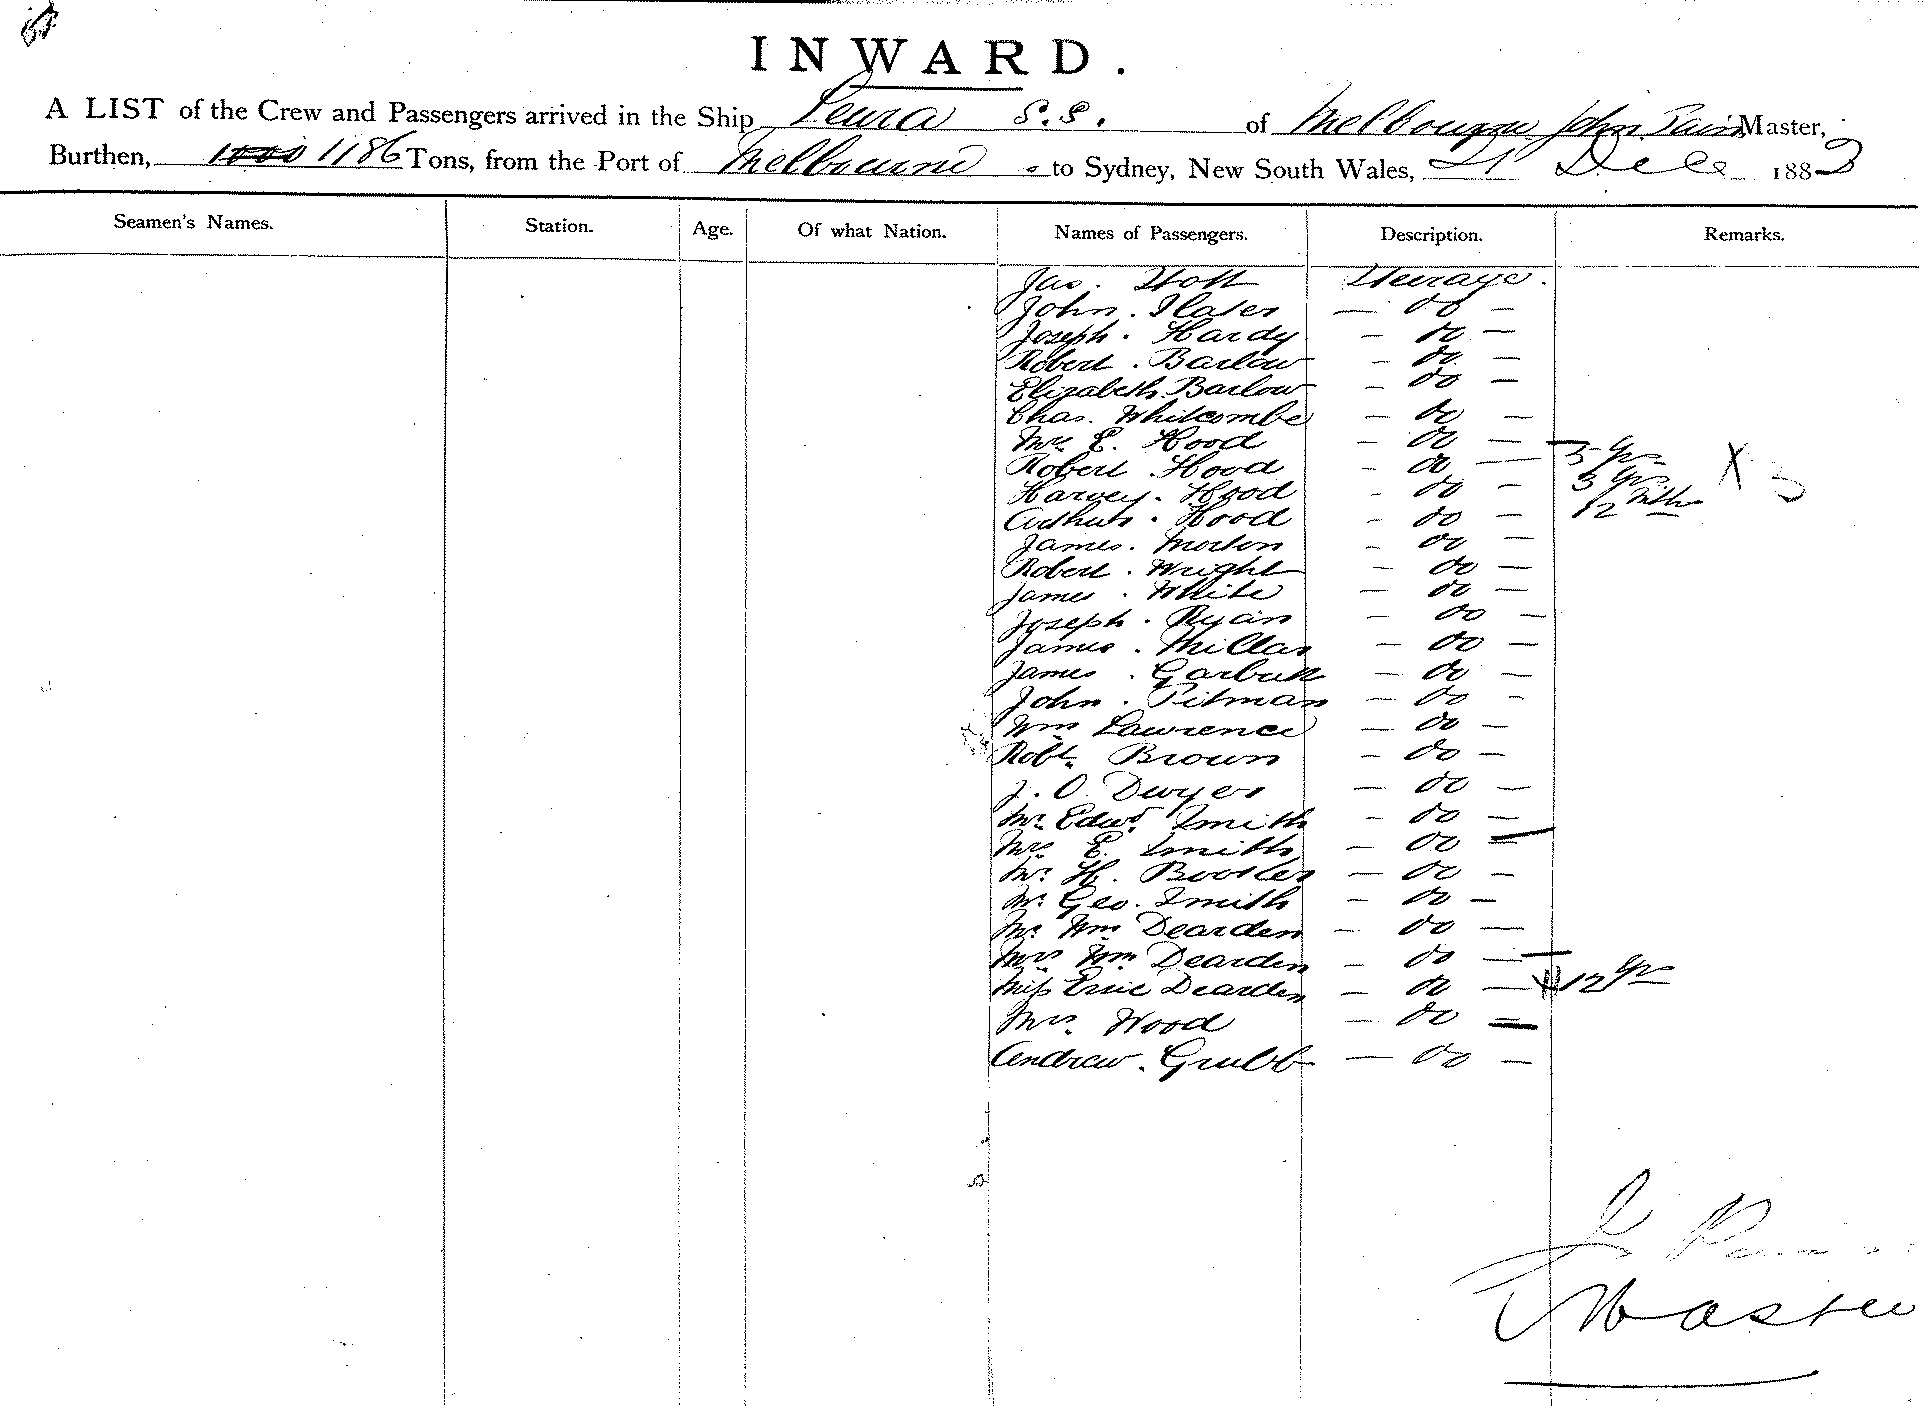 INWARD.
A LIST of the Crew and Passengers arrived in the Ship Leura S.S. of Melbourne John Pain Master,
Burthen, 1000 1186 Tons, from the Port of Melbourne to Sydney, New South Wales, 21 Dec 1883
Seamen's Names. Station. Age. Of what Nation. Names of Passengers. Description. Remarks.
Jas. Holt Steerage.
John. Slater — do —
Joseph. Hardy — do —
Robert. Barlow — do —
Elizabeth. Barlow — do —
Chas. Whitcombe — do —
Mrs. E. Hood — do —
Robert. Hood — do — 5 yrs
Harvey. Hood — do — 3 yrs X 3
Arthur. Hood — do — 12 mths
James. Morton — do —
Robert. Wright — do —
James. White — do —
Joseph. Ryan — do —
James. Millar — do —
James. Garbutt — do —
John. Pitman — do —
Wm Lawrence — do —
Robt. Brown — do —
J. O. Dwyer — do —
Mr. Edwd. Smith — do —
Mrs E. Smith — do —
Mr. H. Booker — do —
Mr. Geo. Smith — do —
Mr. Wm Dearden — do —
Mrs Wm Dearden — do —
Miss Essie Dearden — do — 12 yrs
Mrs. Wood — do —
Andrew. Grubb — do —
J Pain
Master